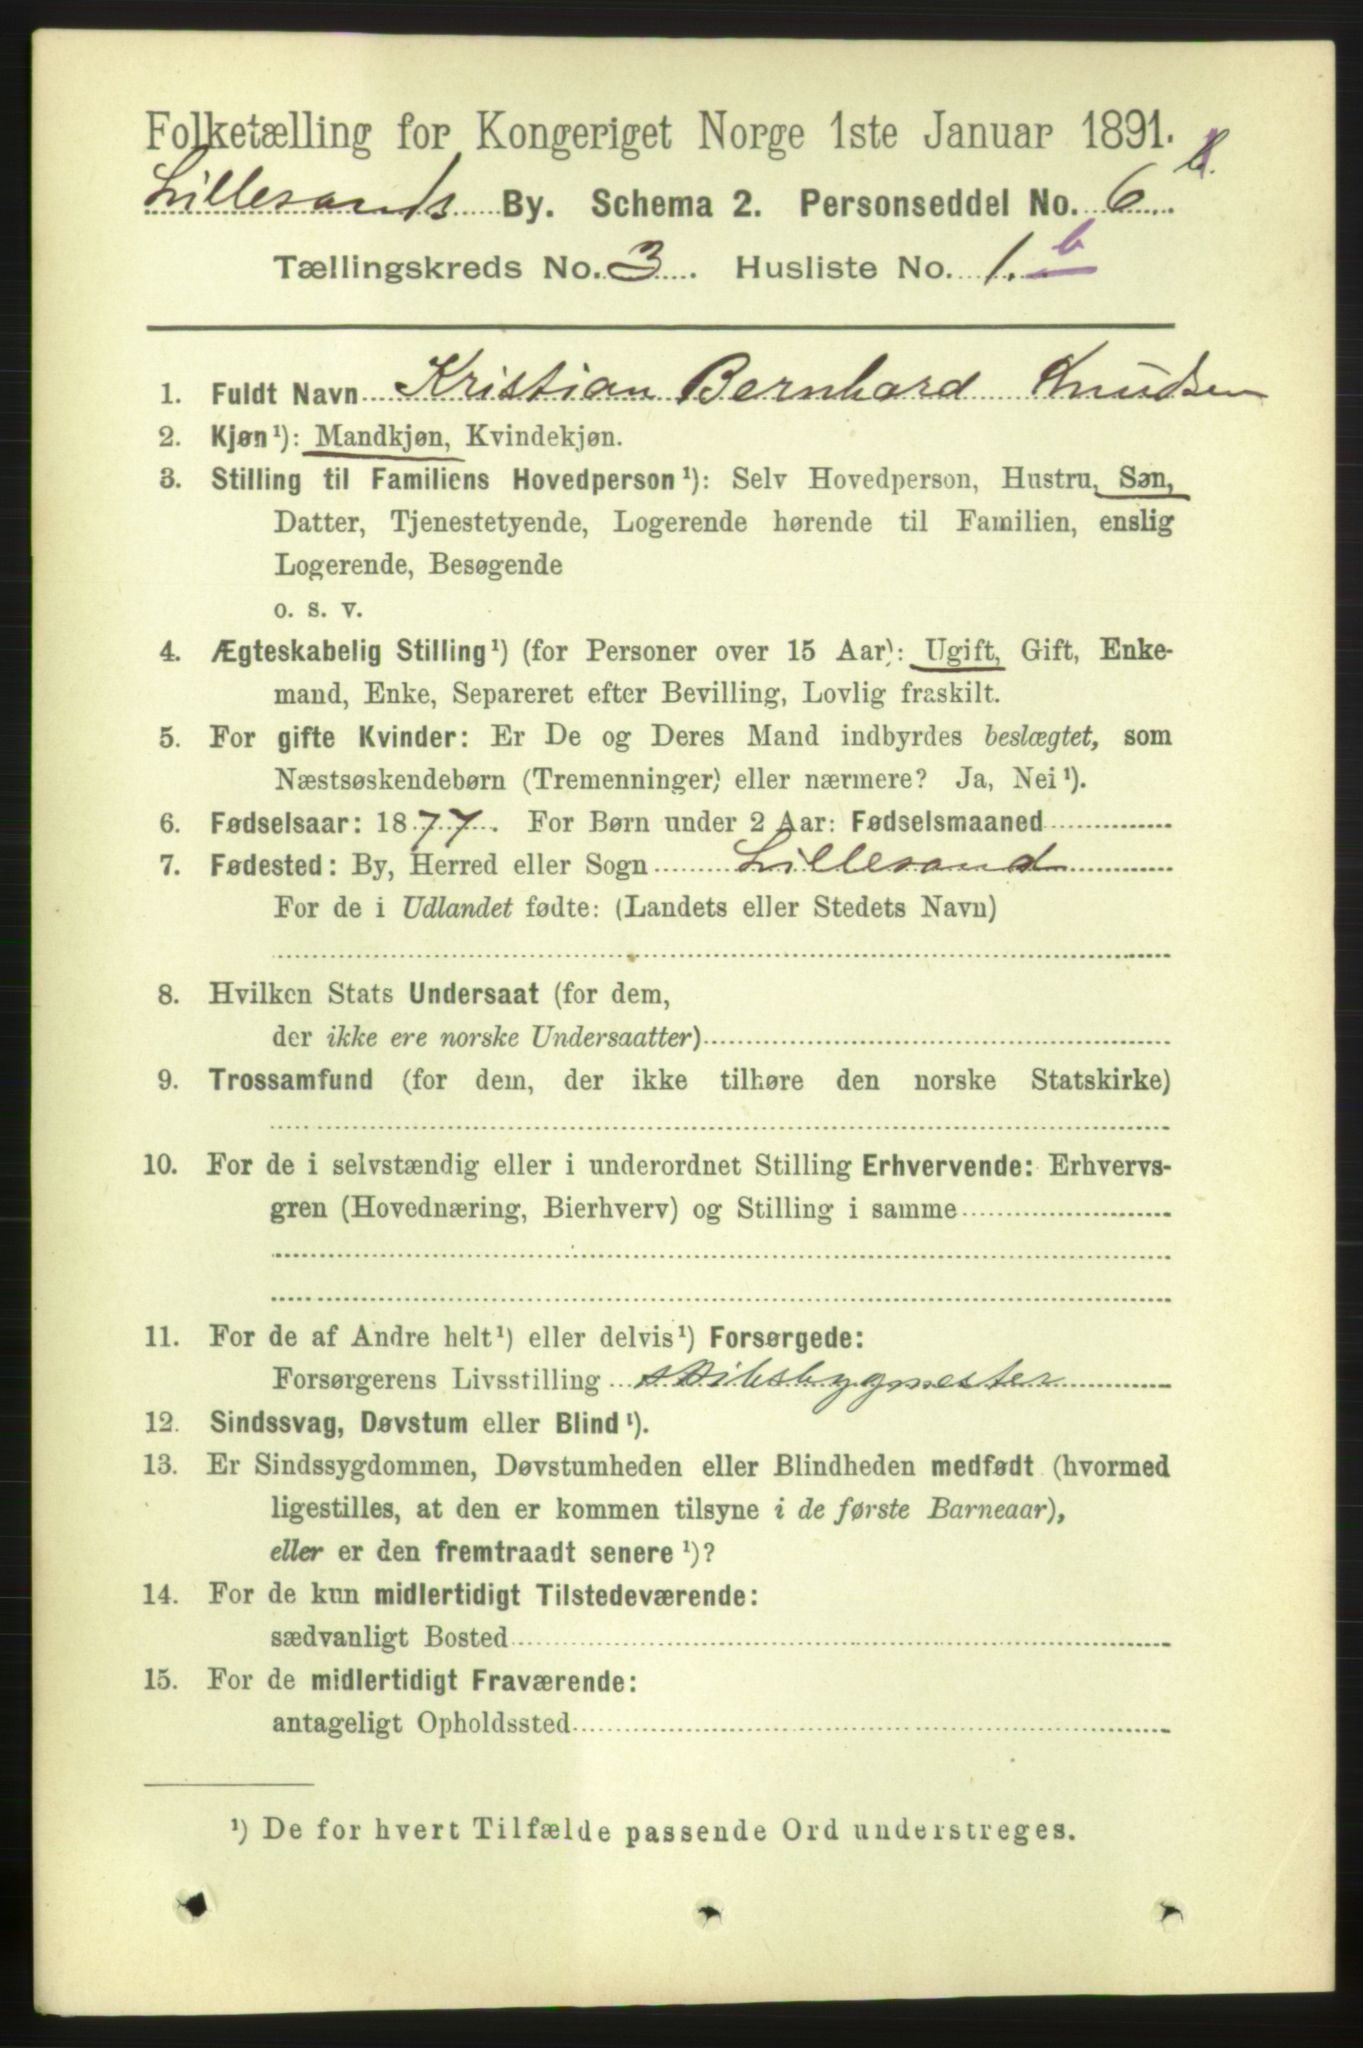 Folketælling for Kongeriget Norge 1ste Januar 1891.
Lillesands By. Schema 2. Personseddel No. 6
Tællingskreds No. 3. Husliste No. 1. b
1. Fuldt Navn Kristian Bernhard Knudsen
2. Kjøn¹): Mandkjøn, Kvindekjøn.
3. Stilling til Familiens Hovedperson¹): Selv Hovedperson, Hustru, Søn,
Datter, Tjenestetyende, Logerende hørende til Familien, enslig
Logerende, Besøgende
o. s. v.
4. Ægteskabelig Stilling¹) (for Personer over 15 Aar): Ugift, Gift, Enke-
mand, Enke, Separeret efter Bevilling, Lovlig fraskilt.
5. For gifte Kvinder: Er De og Deres Mand indbyrdes beslægtet, som
Næstsøskendebørn (Tremenninger) eller nærmere? Ja, Nei¹).
6. Fødselsaar: 1877. For Børn under 2 Aar: Fødselsmaaned
7. Fødested: By, Herred eller Sogn Lillesand
For de i Udlandet fødte: (Landets eller Stedets Navn)
8. Hvilken Stats Undersaat (for dem,
der ikke ere norske Undersaatter)
9. Trossamfund (for dem, der ikke tilhøre den norske Statskirke)
10. For de i selvstændig eller i underordnet Stilling Erhvervende: Erhvervs-
gren (Hovednæring, Bierhverv) og Stilling i samme
11. For de af Andre helt¹) eller delvis¹) Forsørgede:
Forsørgerens Livsstilling skibsbygmester
12. Sindssvag, Døvstum eller Blind¹).
13. Er Sindssygdommen, Døvstumheden eller Blindheden medfødt (hvormed
ligestilles, at den er kommen tilsyne i de første Barneaar),
eller er den fremtraadt senere¹)?
14. For de kun midlertidigt Tilstedeværende:
sædvanligt Bosted
15. For de midlertidigt Fraværende:
antageligt Opholdssted
¹) De for hvert Tilfælde passende Ord understreges.